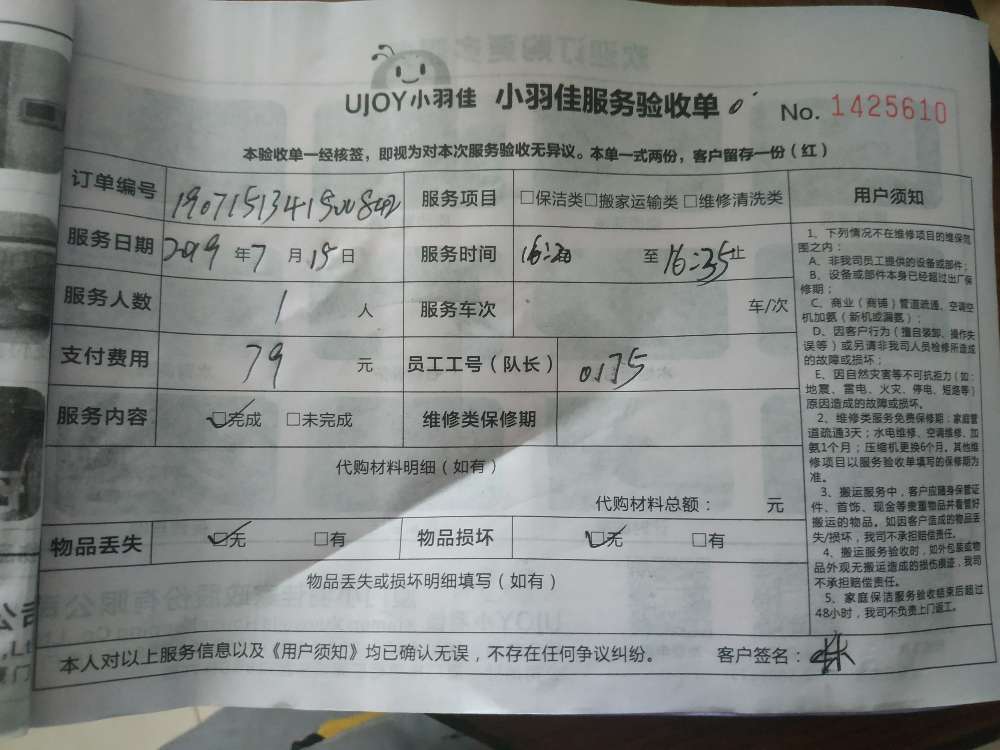 UJOY小羽佳 小羽佳服务验收单 No. 1425610
本验收单一经核签，即视为对本次服务验收无异议。本单一式两份，客户留存一份（红）
订单编号 服务项目 □保洁类□搬家运输类 □维修清洗类
服务日期 2019 年 7 月 15 日 服务时间 至 16:35 止
服务人数 1 人 服务车次 车/次
支付费用 79 元 员工工号（队长） 0175
服务内容 ☑完成 □未完成 维修类保修期
代购材料明细（如有）
代购材料总额： 元
物品丢失 ☑无 □有 物品损坏 ☑无 □有
物品丢失或损坏明细填写（如有）
本人对以上服务信息以及《用户须知》均已确认无误，不存在任何争议纠纷。 客户签名： 林
用户须知
1、下列情况不在维修项目的维保范
围之内：
A、非我司员工提供的设备或部件；
B、设备或部件本身已经超过出厂保
修期；
C、商业（商铺）管道疏通、空调空
机加氨（新机或漏氨）；
D、因客户行为（擅自装卸、操作失
误等）或另请非我司人员检修所造成
的故障或损坏；
E、因自然灾害等不可抗拒力（如：
地震、雷电、火灾、停电、短路等）
原因造成的故障或损坏。
2、维修类服务免费保修期：家庭管
道疏通3天；水电维修、空调维修、加
氨1个月；压缩机更换6个月。其他维
修项目以服务验收单填写的保修期为
准。
3、搬运服务中，客户应随身保管证
件、首饰、现金等贵重物品并看管好
搬运的物品。如因客户造成的物品丢
失/损坏，我司不承担赔偿责任。
4、搬运服务验收时，如外包装或物
品外观无搬运造成的损伤痕迹，我司
不承担赔偿责任。
5、家庭保洁服务验收结束后超过
48小时，我司不负责上门返工。